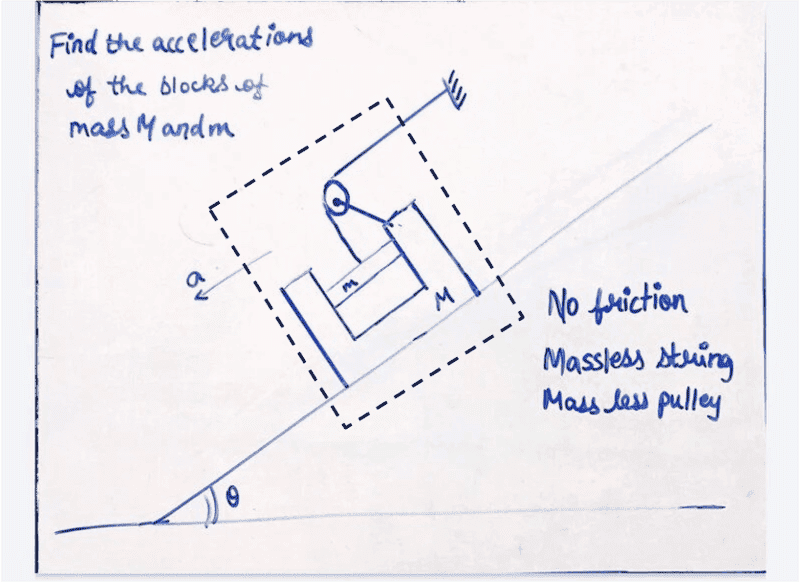 Find the accelerations
of the blocks of
mass M and m
a
m
M
No friction
Massless string
Mass less pulley
θ